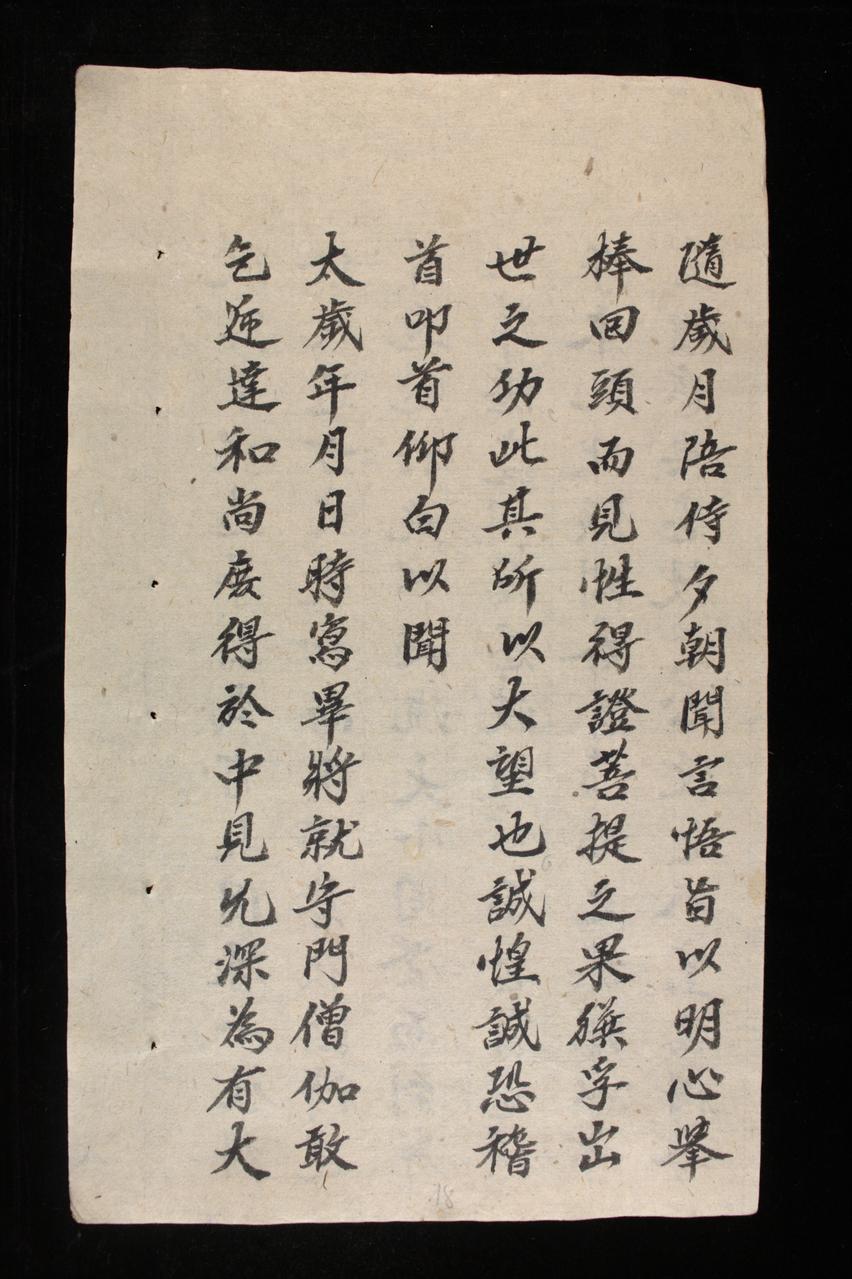 隨歲月陪侍夕朝聞言悟旨以明心舉
棒回頭而見性得證菩提之果殊孚出
世之功此其所以大望也誠惶誠恐稽
首叩首仰白以聞
太歲年月日時寫畢將就守門僧伽敢
乞遞達和尚庶得於中見允深為有大
18